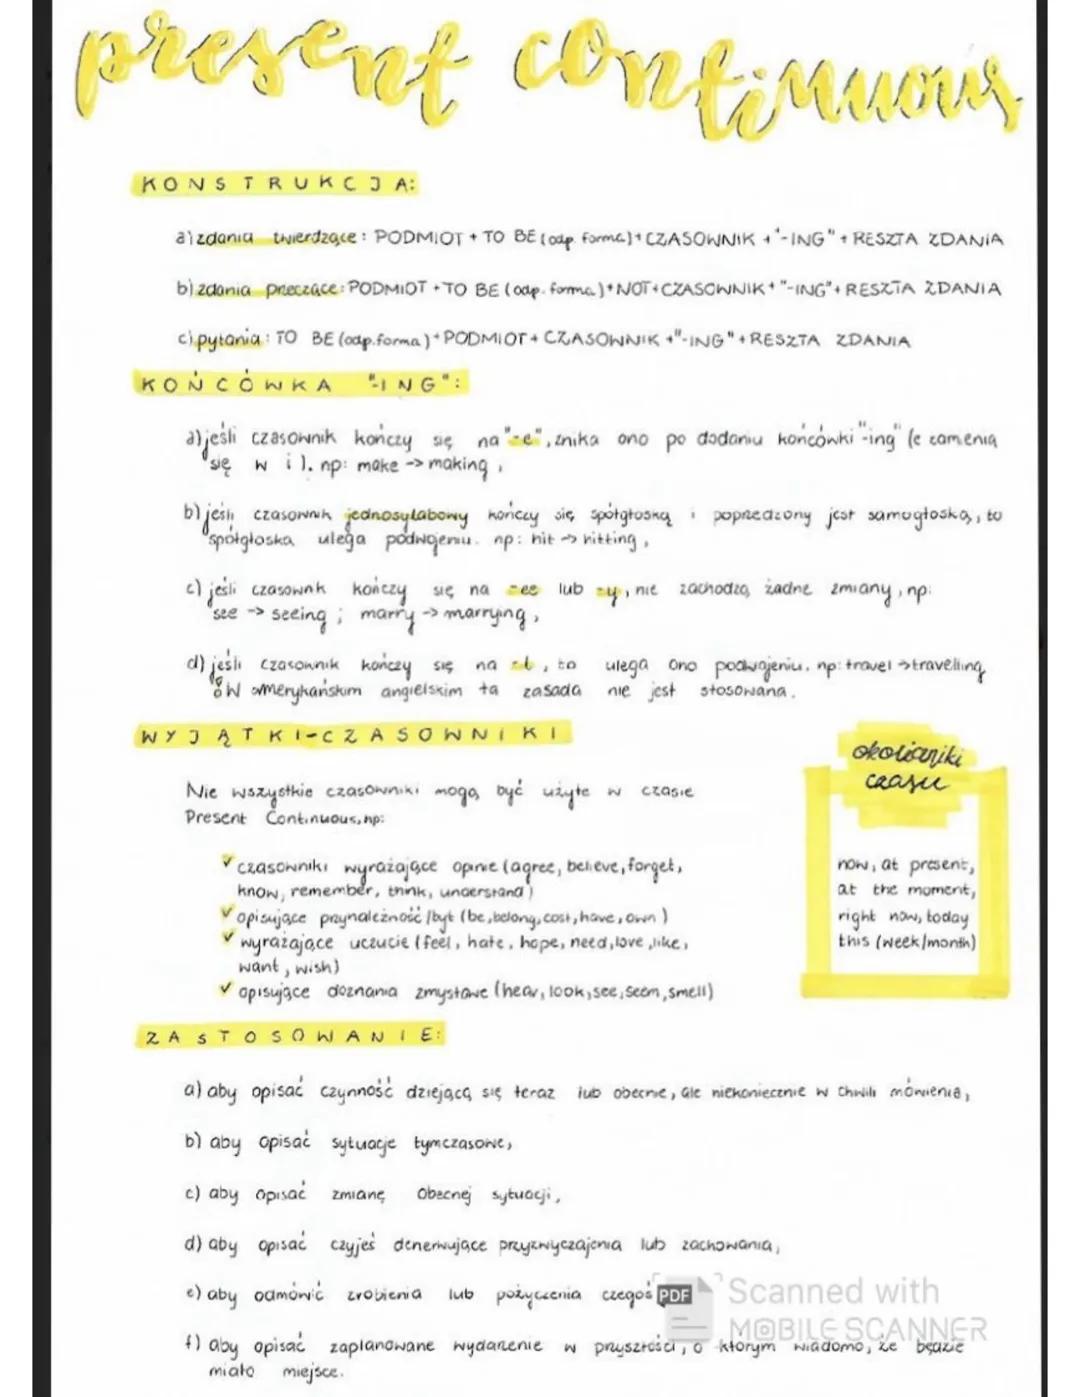 present continuous
KONSTRUKCJA:
a) zdania twierdzące: PODMIOT + TO BE (odp. forma) + CZASOWNIK + "-ING" + RESZTA ZDANIA
b) zdania przeczące: PODMIOT + TO BE (odp. forma) + NOT + CZASOWNIK + "-ING" + RESZTA ZDANIA
c) pytania: TO BE (odp. forma) + PODMIOT + CZASOWNIK + "-ING" + RESZTA ZDANIA
KOŃCÓWKA "-ING":
a) jeśli czasownik kończy się na "-e", znika ono po dodaniu końcówki "-ing" (e zamienia
się w i), np: make -> making,
b) jeśli czasownik jednosylabowy kończy się spółgłoską i poprzedzony jest samogłoską, to
spółgłoska ulega podwojeniu. np: hit -> hitting,
c) jeśli czasownik kończy się na -ee lub -y, nie zachodzą żadne zmiany, np:
see -> seeing; marry -> marrying,
d) jeśli czasownik kończy się na -l, to ulega ono podwojeniu. np: travel -> travelling
W amerykańskim angielskim ta zasada nie jest stosowana.
WYJĄTKI-CZASOWNIKI
Nie wszystkie czasowniki mogą być użyte w czasie
Present Continuous, np:
✓ czasowniki wyrażające opinie (agree, believe, forget,
know, remember, think, understand)
✓ opisujące przynależność/byt (be, belong, cost, have, own)
✓ wyrażające uczucie (feel, hate, hope, need, love, like,
want, wish)
✓ opisujące doznania zmysłowe (hear, look, see, seem, smell)
określniki
czasu
now, at present,
at the moment,
right now, today
this (week/month)
ZASTOSOWANIE:
a) aby opisać czynność dziejącą się teraz lub obecnie, ale niekoniecznie w chwili mówienia,
b) aby opisać sytuacje tymczasowe,
c) aby opisać zmianę obecnej sytuacji,
d) aby opisać czyjeś denerwujące przyzwyczajenia lub zachowania,
e) aby odmówić zrobienia lub pożyczenia czegoś
f) aby opisać zaplanowane wydarzenie w przyszłości, o którym wiadomo, że będzie
miało miejsce.
PDF
Scanned with
MOBILE SCANNER